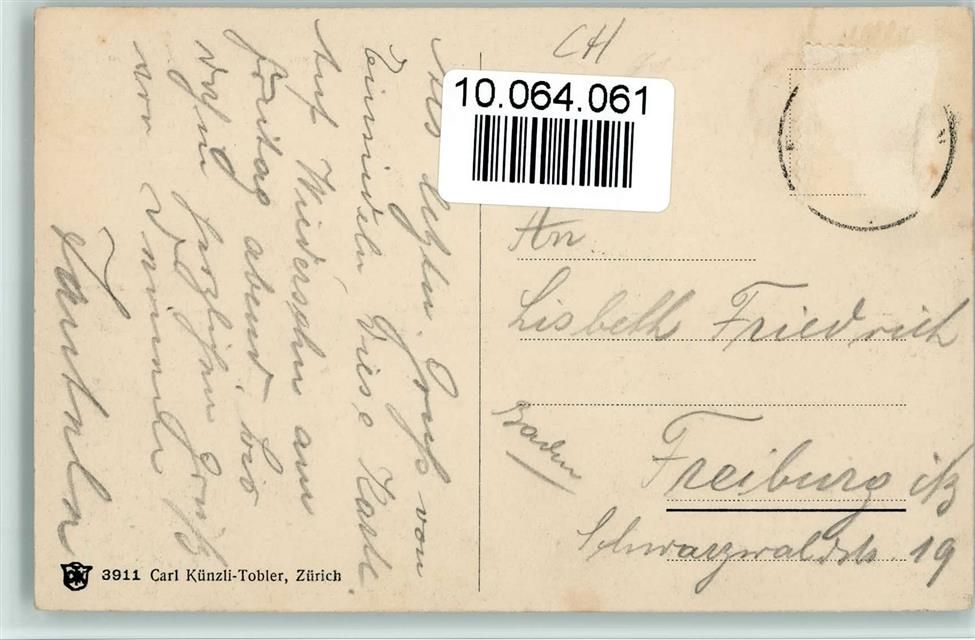 CH
10.064.061
Als letzten Gruß von
Einsiedeln diese Karte.
Auf Wiedersehn am
Freitag abend, bis
dahin herzlichen Gruß
von
An
Lisbeth Friedrich
Baden
Freiburg i/B
Schwarzwaldstr. 19
3911 Carl Künzli-Tobler, Zürich